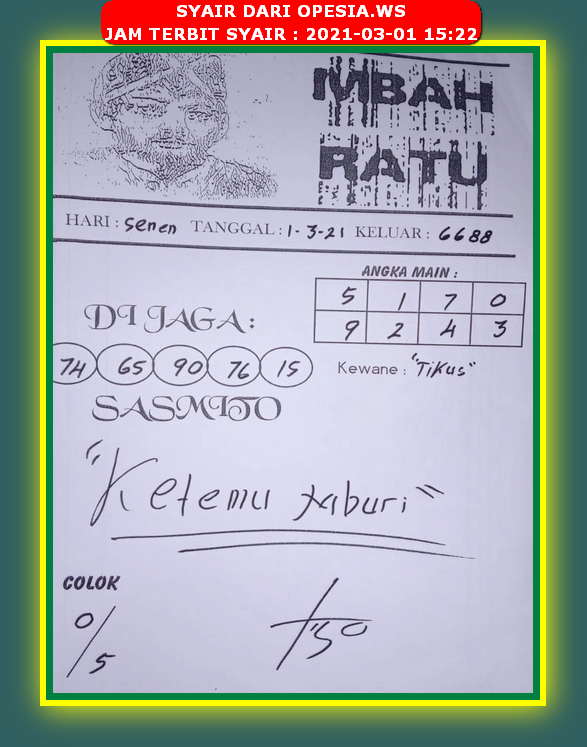 SYAIR DARI OPESIA.WS
JAM TERBIT SYAIR : 2021-03-01 15:22
MBAH
RATU
HARI : Senen TANGGAL : 1-3-21 KELUAR : 6688
ANGKA MAIN :
5 1 7 0
9 2 4 3
DI JAGA :
74 65 90 76 15
Kewane : "Tikus"
SASMITO
"Ketemu taburi"
COLOK
0/5